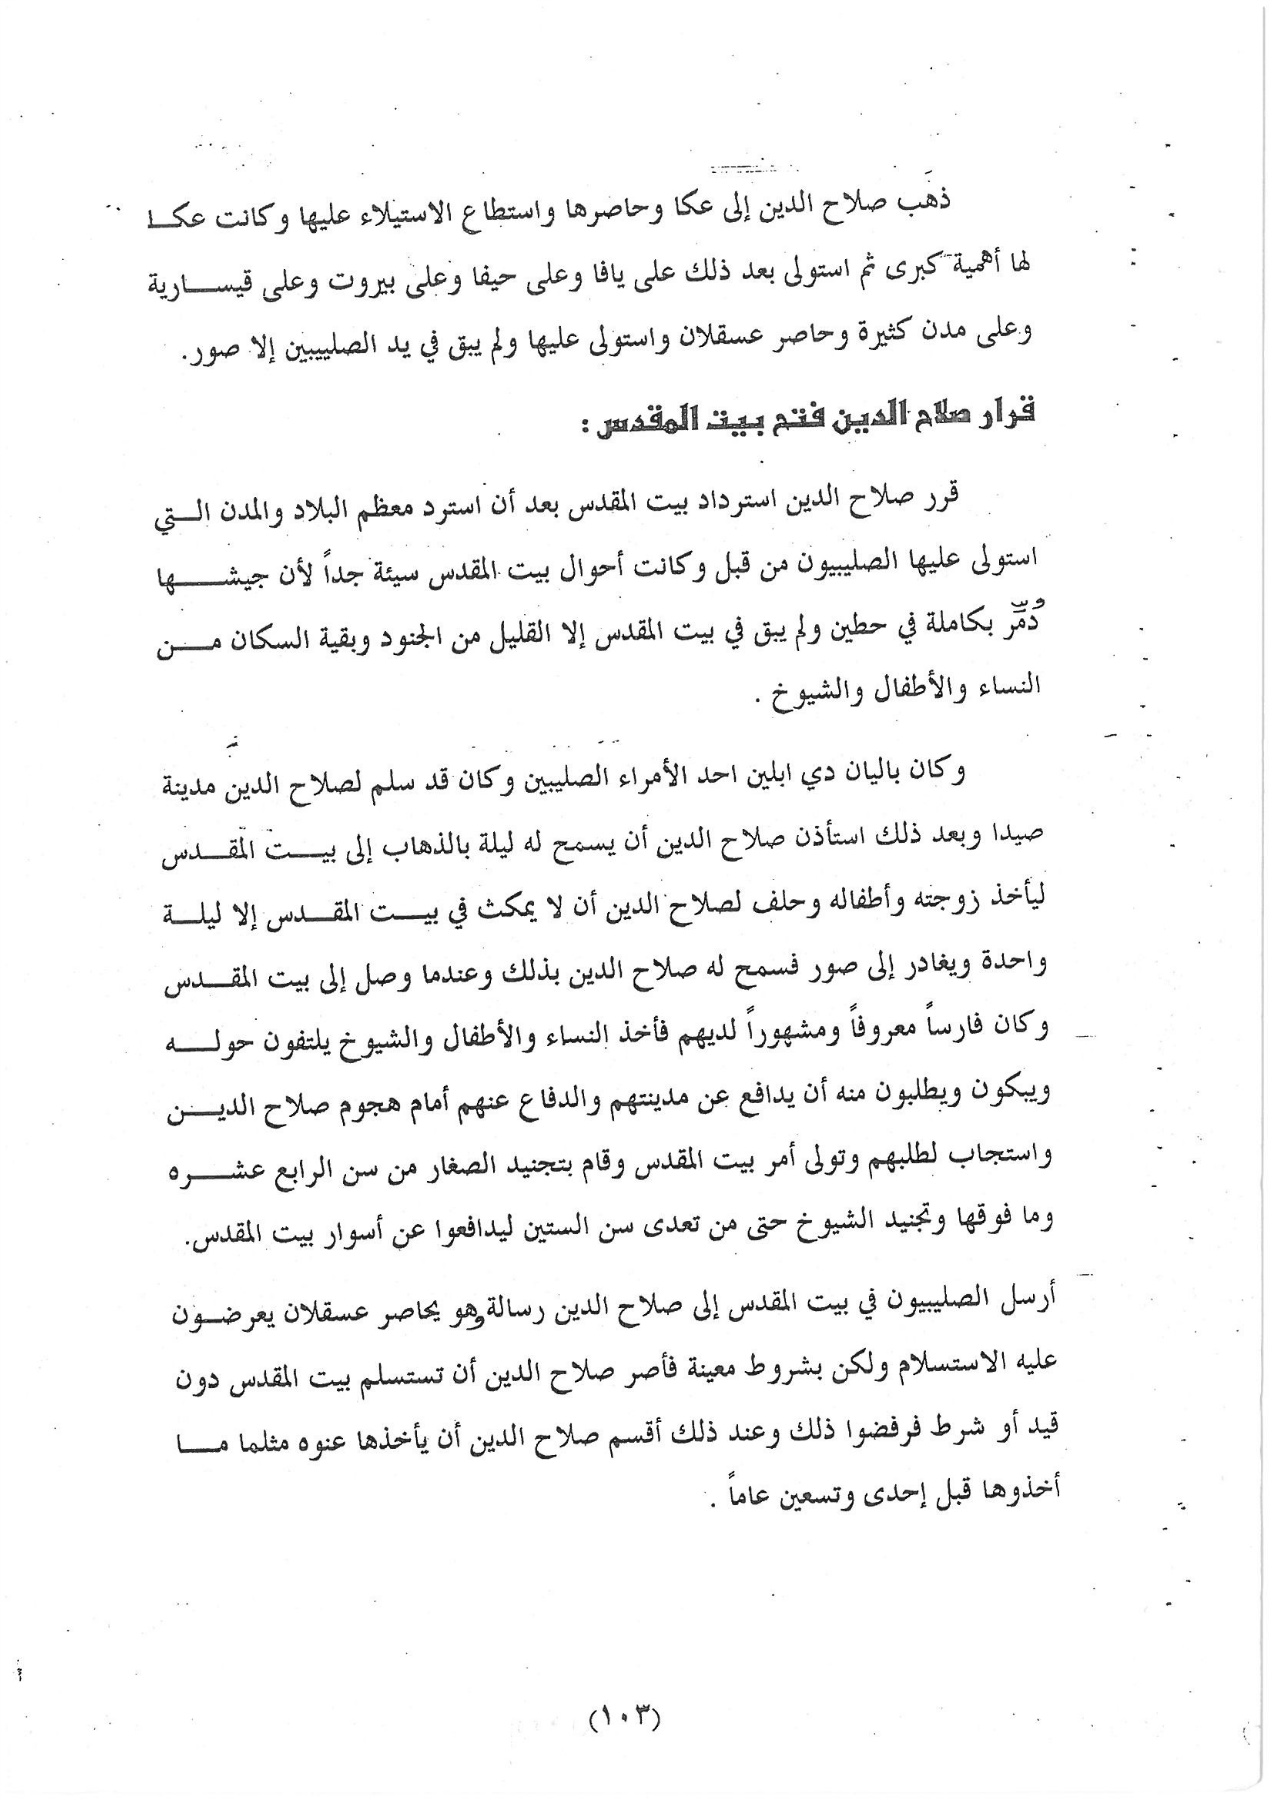 ذهب صلاح الدين إلى عكا وحاصرها واستطاع الاستيلاء عليها وكانت عكـا
لها أهمية كبرى ثم استولى بعد ذلك على يافا وعلى حيفا وعلى بيروت وعلى قيســارية
وعلى مدن كثيرة وحاصر عسقلان واستولى عليها ولم يبق في يد الصليبيين إلا صور.
قرار صلاح الدين فتح بيت المقدس :
قرر صلاح الدين استرداد بيت المقدس بعد أن استرد معظم البلاد والمدن الـتي
استولى عليها الصليبيون من قبل وكانت أحوال بيت المقدس سيئة جداً لأن جيشــها
دُمِّر بكاملة في حطين ولم يبق في بيت المقدس إلا القليل من الجنود وبقية السكان مــن
النساء والأطفال والشيوخ .
وكان باليان دي ابلين احد الأمراء الصليبين وكان قد سلم لصلاح الدين مدينة
صيدا وبعد ذلك استأذن صلاح الدين أن يسمح له ليلة بالذهاب إلى بيــت المقــدس
ليأخذ زوجته وأطفاله وحلف لصلاح الدين أن لا يمكث في بيــت المقــدس إلا ليلــة
واحدة ويغادر إلى صور فسمح له صلاح الدين بذلك وعندما وصل إلى بيت المقــدس
وكان فارساً معروفاً ومشهوراً لديهم فأخذ النساء والأطفال والشيوخ يلتفون حولــه
ويبكون ويطلبون منه أن يدافع عن مدينتهم والدفاع عنهم أمام هجوم صلاح الديــن
واستجاب لطلبهم وتولى أمر بيت المقدس وقام بتجنيد الصغار من سن الرابع عشــره
وما فوقها وتجنيد الشيوخ حتى من تعدى سن الستين ليدافعوا عن أسوار بيت المقدس.
أرسل الصليبيون في بيت المقدس إلى صلاح الدين رسالة وهو يحاصر عسقلان يعرضــون
عليه الاستسلام ولكن بشروط معينة فأصر صلاح الدين أن تستسلم بيت المقدس دون
قيد أو شرط فرفضوا ذلك وعند ذلك أقسم صلاح الدين أن يأخذها عنوه مثلما مــا
أخذوها قبل إحدى وتسعين عاماً .
(١٠٣)